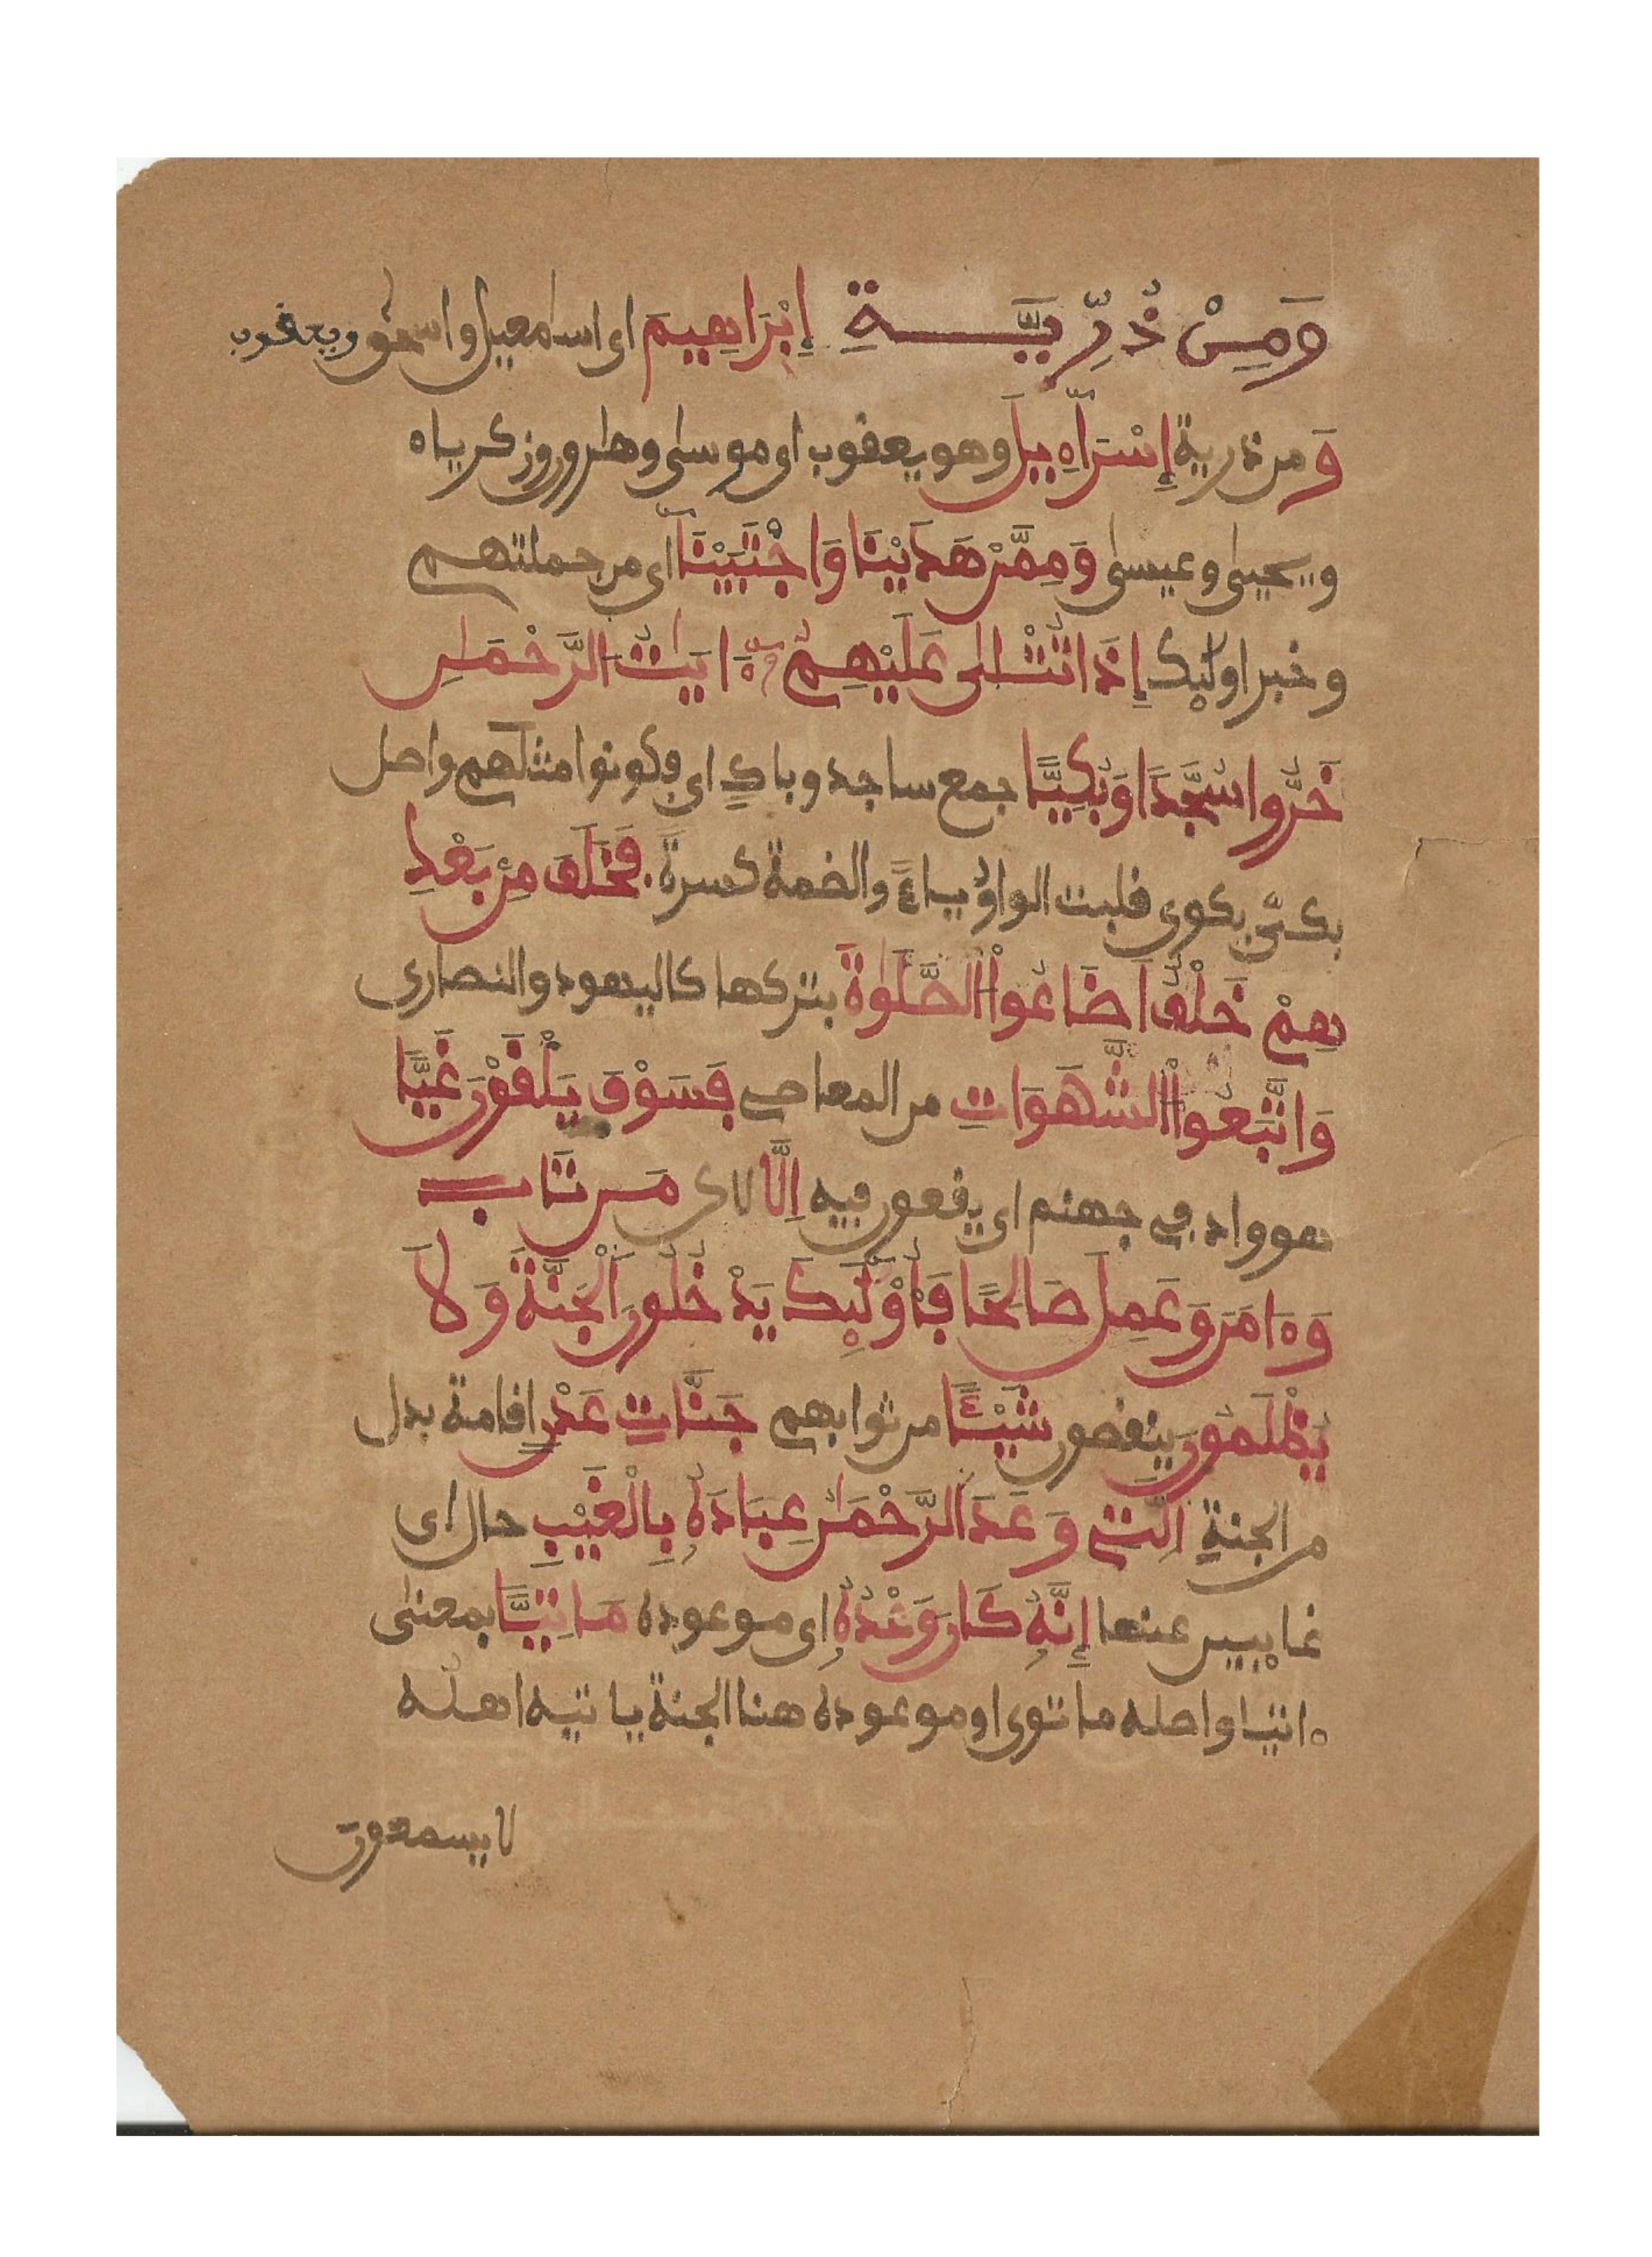 وَمِنْ ذُرِّيَّةِ إِبْرَاهِيمَ اى اسماعيل واسحٰق ويعقوب
وَمن ذرية إِسْرَآءِيلَ وهو يعقوب اى موسى وهرون وزكرياء
ويحيى وعيسى وَمِمَّنْ هَدَيْنَا وَاجْتَبَيْنَآ اى من جملتهم
وخبر اولٰئك إِذَا تُتْلَى عَلَيْهِمُۥٓ ءَايَٰتُ الرَّحْمَٰنِ
خَرُّوا سُجَّدًا وَبُكِيًّا جمع ساجد وباكٍ اى فكونوا مثلهم واصل
بكىّ بكوى قلبت الواو ياءً والضمة كسرةً. فَخَلَفَ مِنۢ بَعْدِ
هِمْ خَلْفٌ اَضَاعُواْ الصَّلَوٰةَ بتركها كاليهود والنصارى
وَاتَّبَعُواْ الشَّهَوَاتِ من المعاصى فَسَوْفَ يَلْقَوْنَ غَيًّا
هو واد فى جهنم اى يقعون فيه اِلَّا لاكى مَن تَابَ
وَءَامَنَ وَعَمِلَ صَالِحًا فَأُوْلَٰئِكَ يَدْخُلُونَ اَلْجَنَّةَ وَلاَ
يُظْلَمُونَ ينقصون شَيْـًٔا من ثوابهم جَنَّاتِ عَدْنٍ اقامة بدل
من الجنةِ اِلَّتِى وَعَدَ الرَّحْمَٰنُ عِبَادَهُۥ بِالْغَيْبِ حال اى
غايبين عنها إِنَّهُۥ كَانَ وَعْدُهُۥ اى موعوده مَاتِيًّا بمعنى
ءاتيا واصله ماتوى او موعوده هنا الجنة ياتيه اهله
لا يسمعون